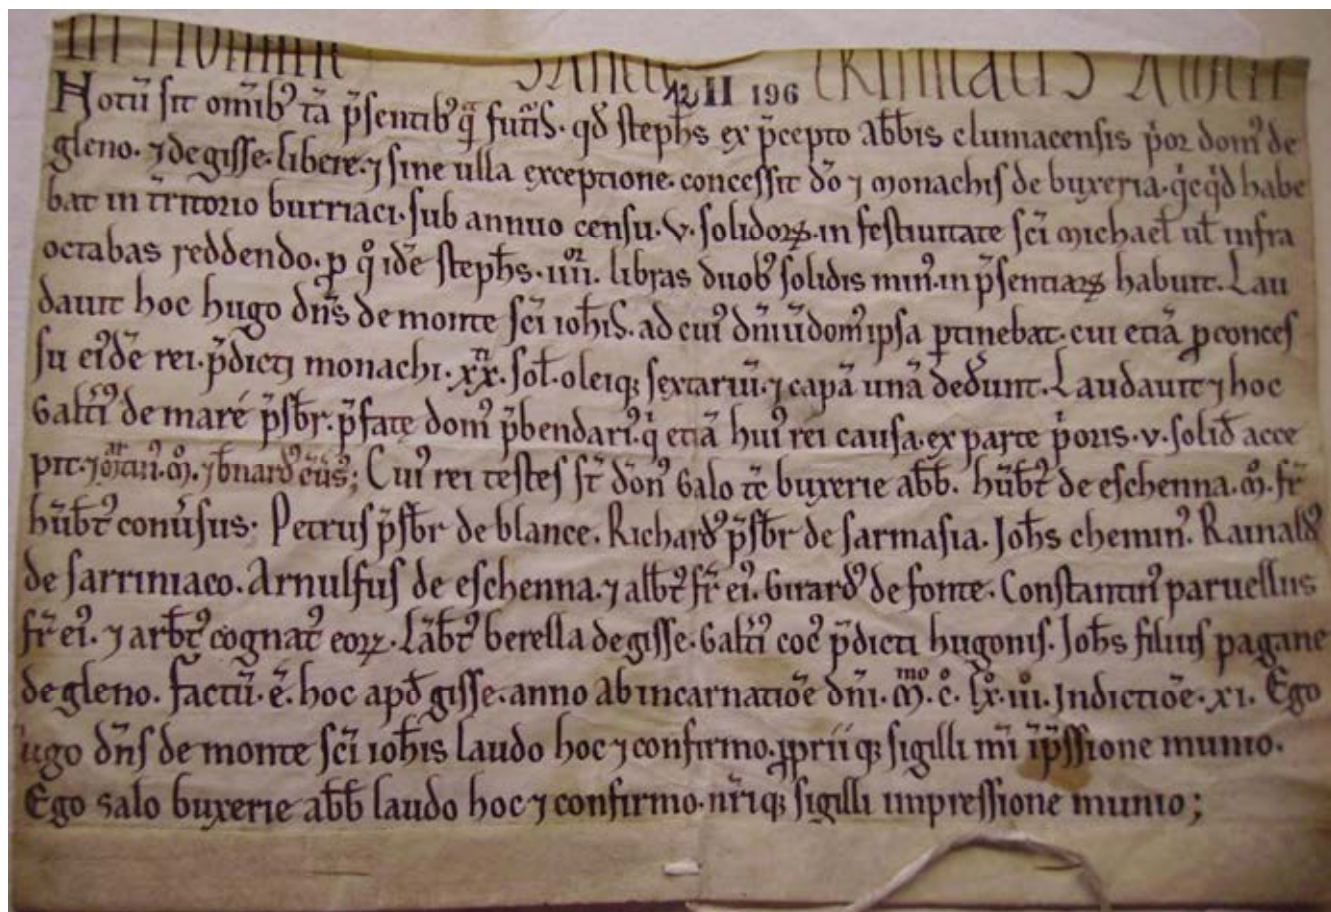 In nomine sancte trinitatis Amen
12 II 196
Notũ sit om̃ib᷒ tã p̃sentib᷒ q̃ futur̃. qđ steph̃s ex p̃cepto abb̃is clumacensis p̃or dom᷒ de
gleno. ⁊ de gisse. libere. ⁊ sine ulla exceptione. concessit dõ ⁊ monachis de buxeria. qicqđ habe
bat in t̃ritorio burriaci. sub annuo censu. v. solidoꝝ. in festiuitate sc̃i michael̃ ul̃ infra
octabas reddendo. p qͦ idẽ steph̃s. iiiior. libras duob᷒ solidis min᷒. in p̃sentiaꝝ habuit. Lau
dauit hoc hugo dñs de monte sc̃i ioh̃is. ad cui᷒ dñiũ dom᷒ ipsa ꝑtinebat. cui etiã ꝓ conces
su ei᷒dẽ rei. p̃dicti monachi. xxti. sol̃. oleiqꝫ sextariũ. ⁊ capã unã dedẽunt. Laudauit ⁊ hoc
Galt̃i᷒ de maré p̃sb̃r. p̃fate dom᷒ p̃bendari᷒. qi etiã hui᷒ rei causa. ex parte p̃oris. v. soliđ acce
pit. ⁊ b̃nard᷒
Cui᷒ rei testes st̃ dõn᷒ Galo tc̃ buxerie abb̃. hũbt̃᷒ de eschenna. mͦ. fr̃
hũbt̃᷒ conũsus. Petrus p̃sb̃r de blance. Richard᷒ p̃sb̃r de sarmasia. Joh̃s chemin᷒. Rainald᷒
de sarriniaco. Arnulfus de eschenna. ⁊ alb̃t᷒ fr̃ ei᷒. Girard᷒ de fonte. Constantin᷒ paruellus
fr̃ ei᷒. ⁊ arb̃t᷒ cognat᷒ eoꝝ. Lãb̃t᷒ berella de gisse. Galt̃i᷒ coc᷒ p̃dicti hugonis. Joh̃s filius pagane
de gleno. factũ. ẽ. hoc apđ gisse. anno ab incarnatiõe dñi. mo. cͦ. lxͦ. iii. Indictiõe. xi. Ego
ugo dñs de monte sc̃i ioh̃is laudo hoc ⁊ confirmo. ꝓpriiqꝫ sigilli mĩ ĩp̃ssione munio.
Ego Galo buxerie abb̃ laudo hoc ⁊ confirmo. nr̃iqꝫ sigilli impressione munio;